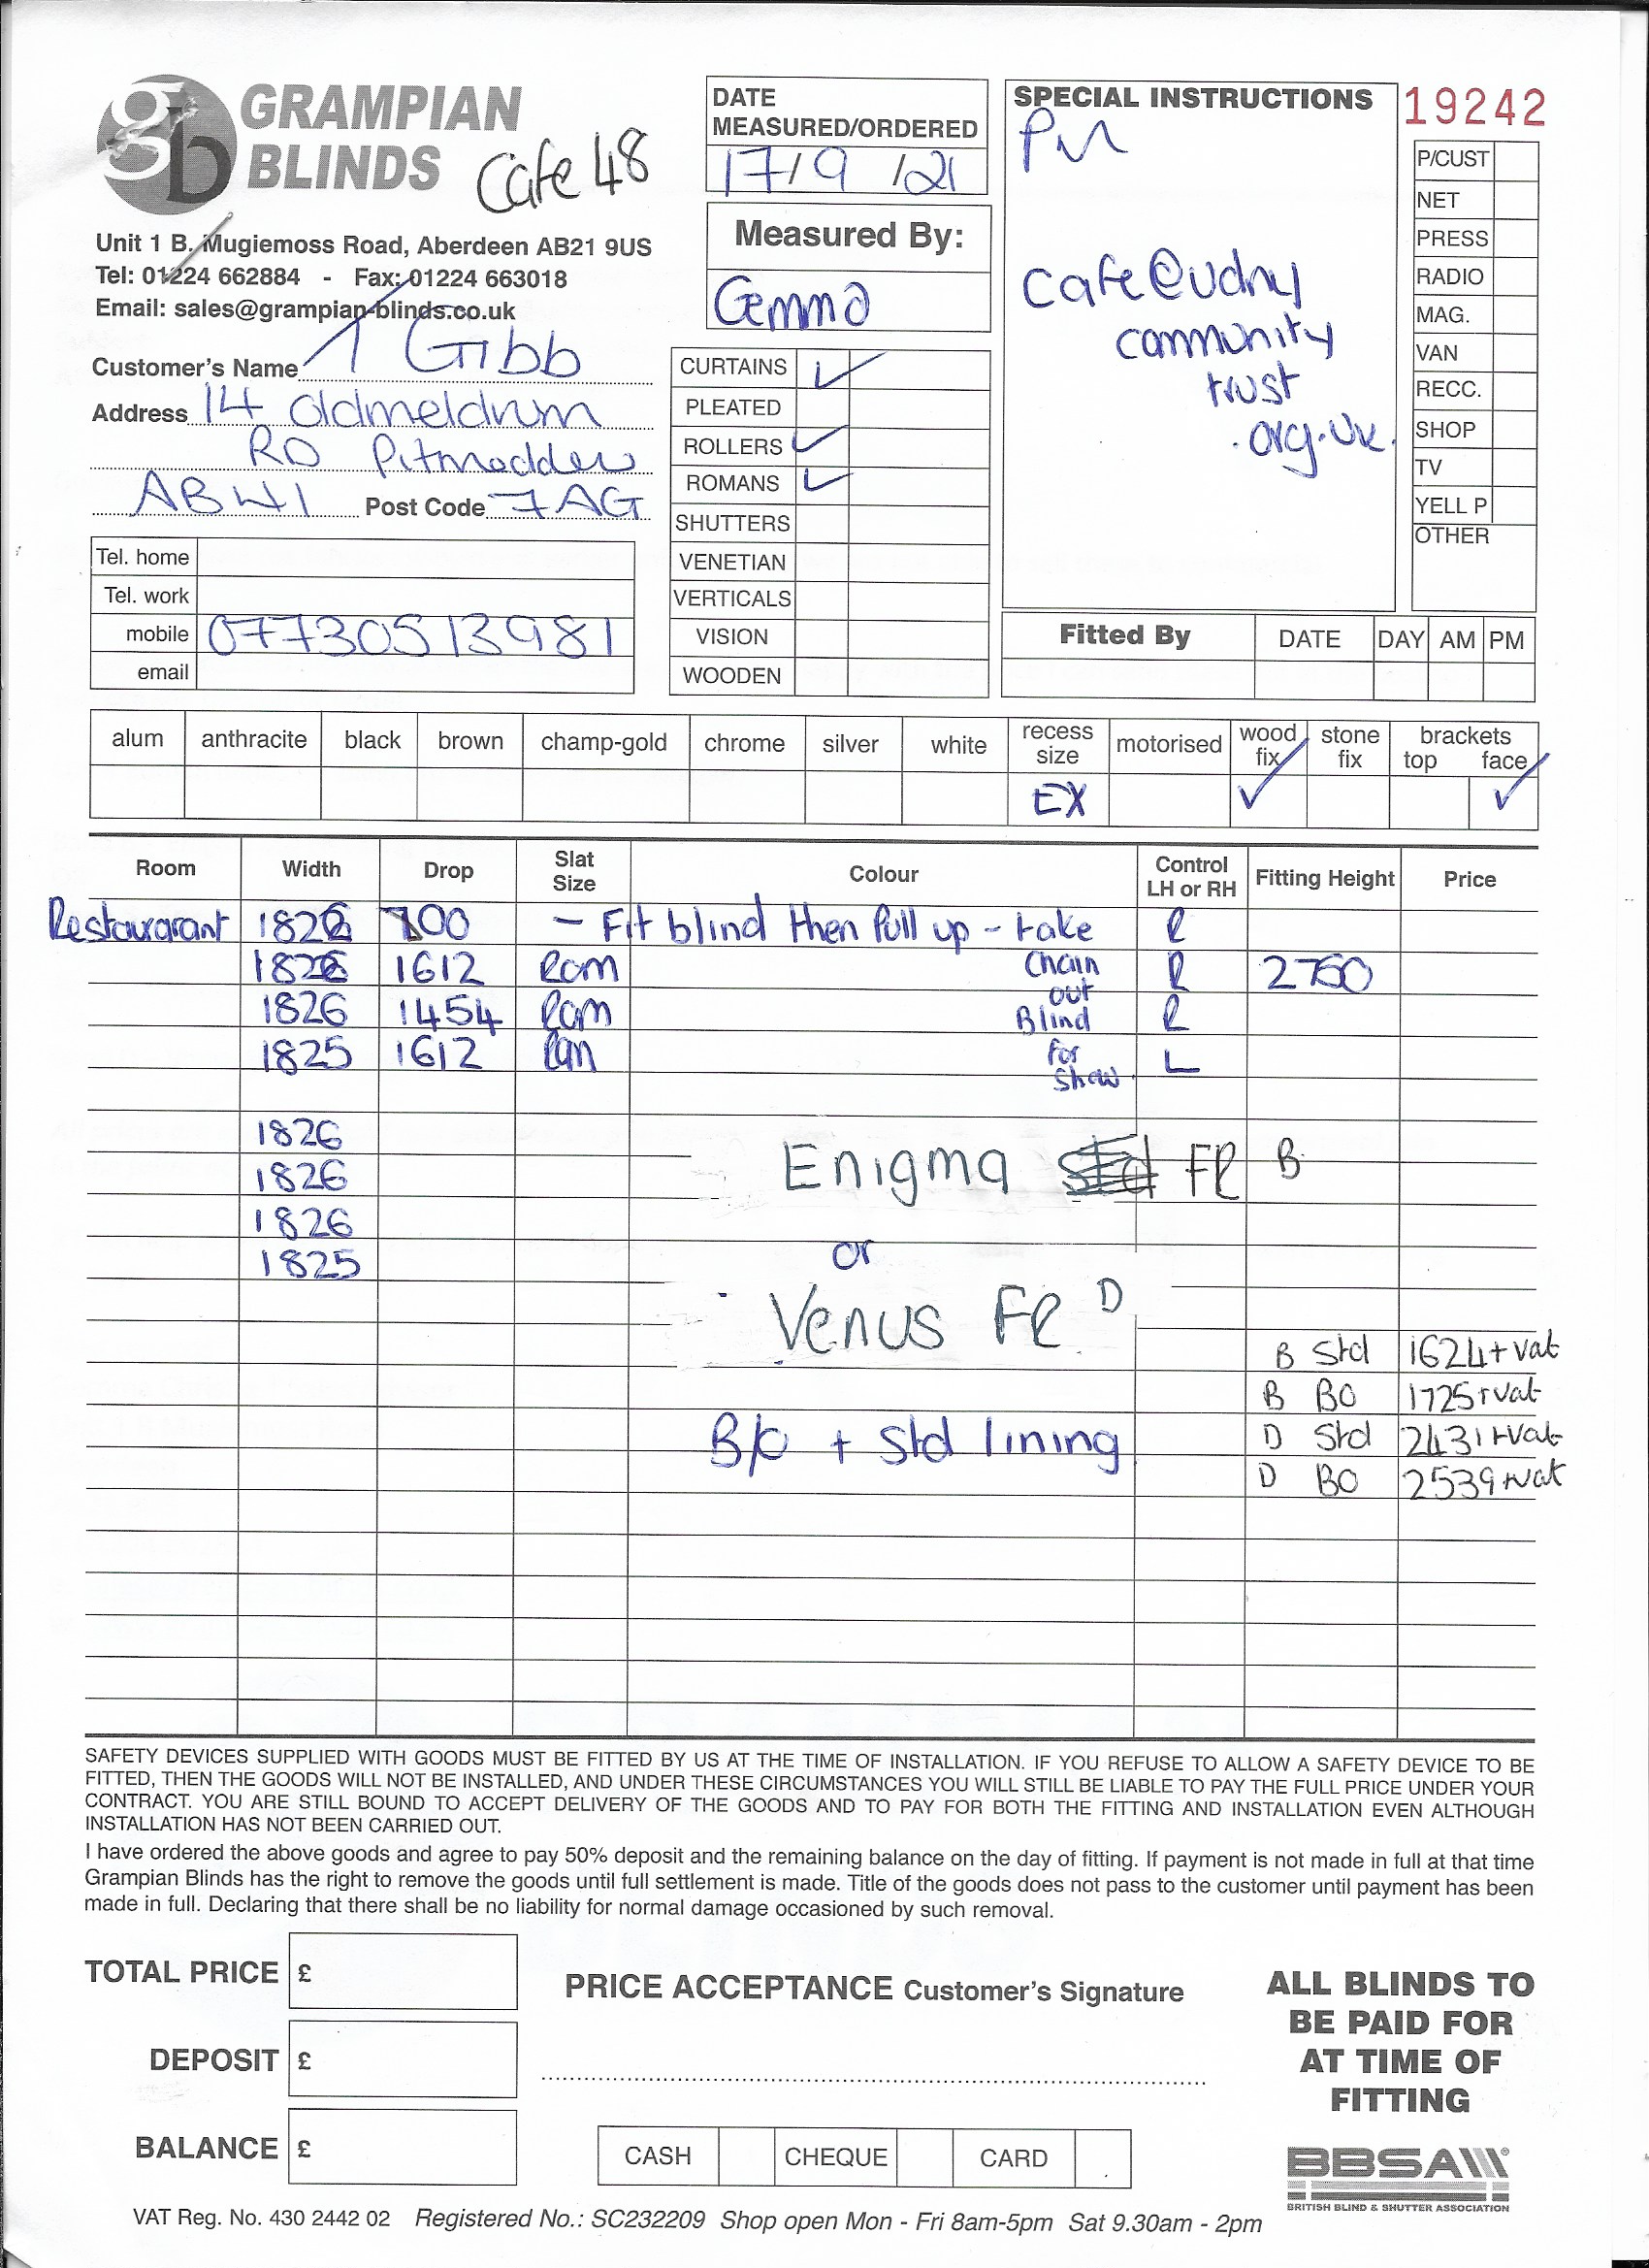 GRAMPIAN
BLINDS
Cafe 48
Unit 1 B. Mugiemoss Road, Aberdeen AB21 9US
Tel: 01224 662884 - Fax: 01224 663018
Email: sales@grampian-blinds.co.uk
Customer's Name T Gibb
Address 14 oldmeldrum
RD Pitmedden
AB41 Post Code 7AG
Tel. home
Tel. work
mobile 07730513981
email
DATE
MEASURED/ORDERED
17/9/21
Measured By:
Gemma
CURTAINS ✓
PLEATED
ROLLERS ✓
ROMANS ✓
SHUTTERS
VENETIAN
VERTICALS
VISION
WOODEN
SPECIAL INSTRUCTIONS
PM
Cafe@udny
community
trust
.org.uk
19242
P/CUST
NET
PRESS
RADIO
MAG.
VAN
RECC.
SHOP
TV
YELL P
OTHER
Fitted By DATE DAY AM PM
alum anthracite black brown champ-gold chrome silver white recess size motorised wood fix stone fix brackets top face
EX ✓ ✓
Room Width Drop Slat Size Colour Control LH or RH Fitting Height Price
Restaurarant 1826 700 - Fit blind then Pull up - take R
1826 1612 Rom Chain R 2750
out
1826 1454 Rom Blind R
1825 1612 Rom for L
show
1826
Enigma FR B
1826
1826
or
1825
Venus FR D
B Std 1624+vat
B BO 1725+vat
B/o + Std lining D Std 2431+vat
D BO 2539+vat
SAFETY DEVICES SUPPLIED WITH GOODS MUST BE FITTED BY US AT THE TIME OF INSTALLATION. IF YOU REFUSE TO ALLOW A SAFETY DEVICE TO BE
FITTED, THEN THE GOODS WILL NOT BE INSTALLED, AND UNDER THESE CIRCUMSTANCES YOU WILL STILL BE LIABLE TO PAY THE FULL PRICE UNDER YOUR
CONTRACT. YOU ARE STILL BOUND TO ACCEPT DELIVERY OF THE GOODS AND TO PAY FOR BOTH THE FITTING AND INSTALLATION EVEN ALTHOUGH
INSTALLATION HAS NOT BEEN CARRIED OUT.
I have ordered the above goods and agree to pay 50% deposit and the remaining balance on the day of fitting. If payment is not made in full at that time
Grampian Blinds has the right to remove the goods until full settlement is made. Title of the goods does not pass to the customer until payment has been
made in full. Declaring that there shall be no liability for normal damage occasioned by such removal.
TOTAL PRICE £
DEPOSIT £
BALANCE £
PRICE ACCEPTANCE Customer's Signature
CASH CHEQUE CARD
ALL BLINDS TO
BE PAID FOR
AT TIME OF
FITTING
BBSA
BRITISH BLIND & SHUTTER ASSOCIATION
VAT Reg. No. 430 2442 02 Registered No.: SC232209 Shop open Mon - Fri 8am-5pm Sat 9.30am - 2pm